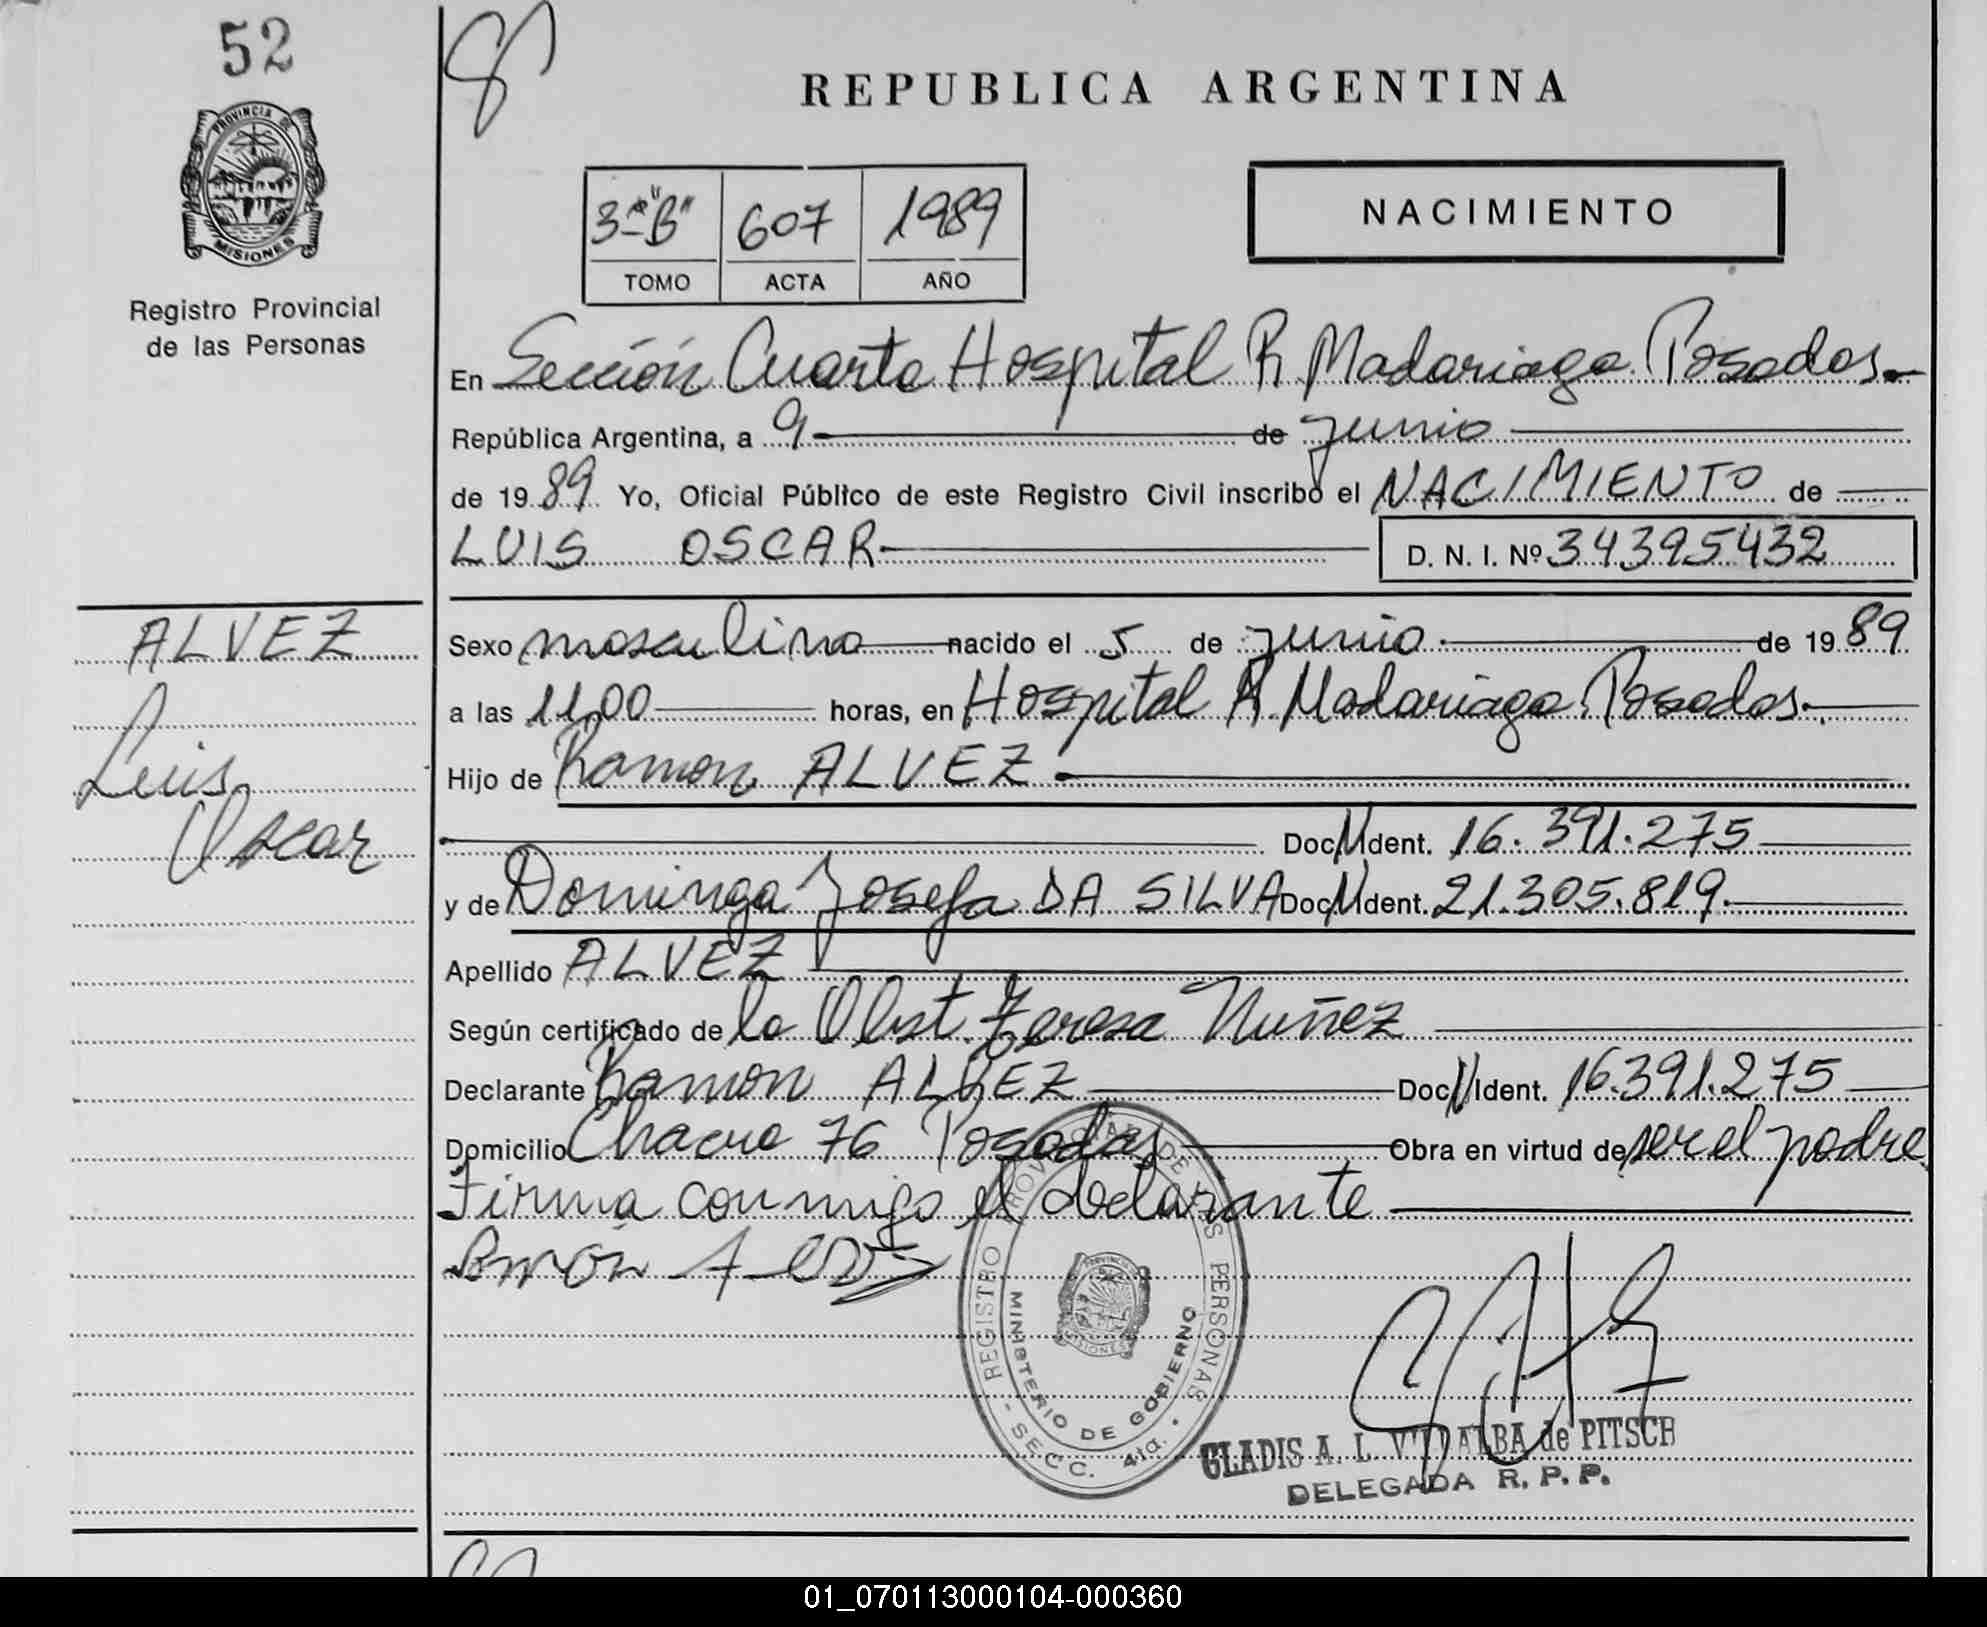 52
PROVINCIA DE
MISIONES
Registro Provincial
de las Personas
ALVEZ
Luis
Oscar
REPUBLICA ARGENTINA
3-"B" 607 1989
TOMO ACTA AÑO
NACIMIENTO
En Sección Cuarta Hospital R Madariaga Posadas.
República Argentina, a 9 de junio
de 1989 Yo, Oficial Público de este Registro Civil inscribo el NACIMIENTO de
LUIS OSCAR D. N. I. Nº 34395432
Sexo masculino nacido el 5 de junio de 1989
a las 11,00 horas, en Hospital R. Madariaga Posadas.
Hijo de Ramon ALVEZ
Doc. N Ident. 16.391.275
y de Dominga Josefa DA SILVA Doc. N Ident. 21.305.819.
Apellido ALVEZ
Según certificado de la Obst. Teresa Nuñez
Declarante Ramon ALVEZ Doc. N Ident. 16.391.275
Domicilio Chacra 76 Posadas Obra en virtud de ser el padre
Firma conmigo el declarante
REGISTRO PROVINCIAL DE LAS PERSONAS
MINISTERIO DE GOBIERNO
- SECC. 4ta. -
GLADIS A. L. VILLALBA de PITSCH
DELEGADA R. P. P.
01_070113000104-000360